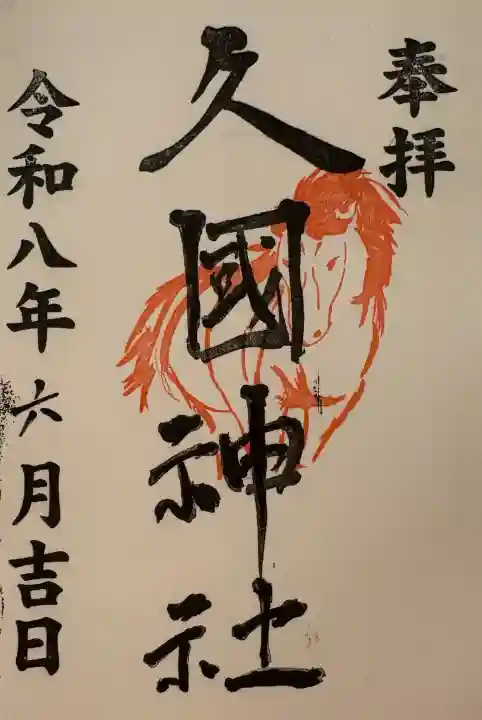 奉拝
久國神社
令和八年六月吉日